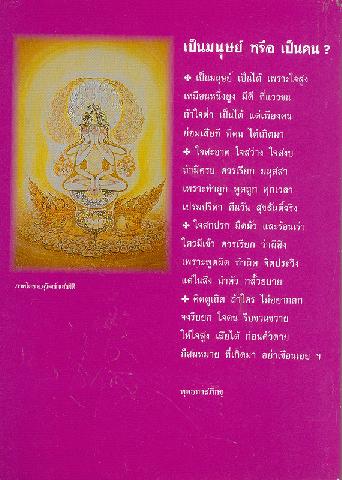 เป็นมนุษย์ หรือ เป็นคน ?
✤ เป็นมนุษย์ เป็นได้ เพราะใจสูง
เหมือนหนึ่งยูง มีดี ที่แววขน
ถ้าใจต่ำ เป็นได้ แต่เพียงคน
ย่อมเสียที ที่ตน ได้เกิดมา
✤ ใจสะอาด ใจสว่าง ใจสงบ
ถ้ามีครบ ควรเรียก มนุสสา
เพราะทำถูก พูดถูก ทุกเวลา
เปรมปรีดา คืนวัน สุขสันติ์จริง
✤ ใจสกปรก มืดมัว และร้อนเร่า
ใครมีเข้า ควรเรียก ว่าผีสิง
เพราะพูดผิด ทำผิด จิตประวิง
แต่ในสิ่ง นำตัว กลั้วอบาย
✤ คิดดูเถิด ถ้าใคร ไม่อยากตก
จงรีบยก ใจตน รีบขวนขวาย
ให้ใจสูง เสียได้ ก่อนตัวตาย
ก็สมหมาย ที่เกิดมา อย่าเชือนเอย ฯ
พุทธทาสภิกขุ